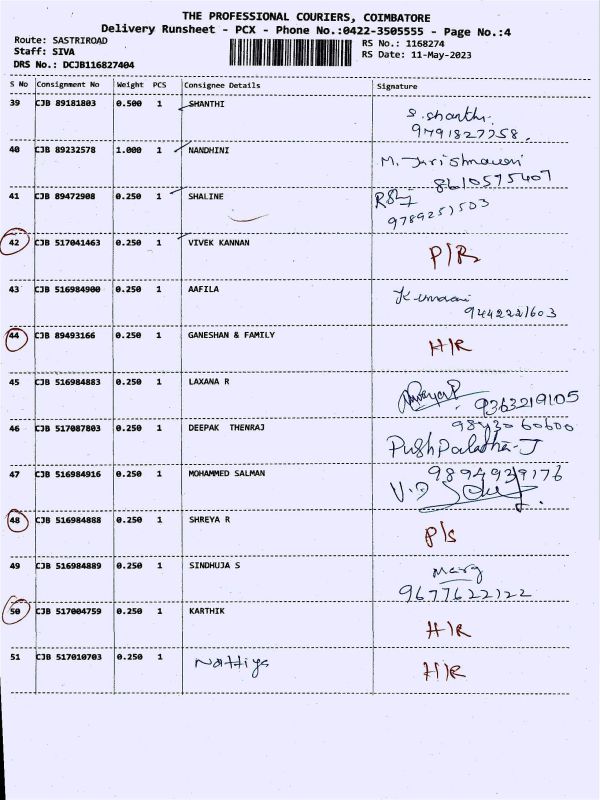 THE PROFESSIONAL COURIERS, COIMBATORE
Delivery Runsheet - PCX - Phone No.:0422-3505555 - Page No.:4
Route: SASTRIROAD RS No.: 1168274
Staff: SIVA RS Date: 11-May-2023
DRS No.: DCJB116827404
S No Consignment No Weight PCS Consignee Details Signature
39 CJB 89181803 0.500 1 SHANTHI S. Shanthi.
9791827258.
40 CJB 89232578 1.000 1 NANDHINI M.
8610575407
41 CJB 89472908 0.250 1 SHALINE
9789251503
42 CJB 517041463 0.250 1 VIVEK KANNAN P/R
43 CJB 516984900 0.250 1 AAFILA Kumaari
9442221603
44 CJB 89493166 0.250 1 GANESHAN & FAMILY H/R
45 CJB 516984883 0.250 1 LAXANA R
9363219105
46 CJB 517087803 0.250 1 DEEPAK THENRAJ 9843060600
PushPalatha-J
47 CJB 516984916 0.250 1 MOHAMMED SALMAN 9894939176
V.D
48 CJB 516984888 0.250 1 SHREYA R P/S
49 CJB 516984889 0.250 1 SINDHUJA S Mary
9677622122
50 CJB 517004759 0.250 1 KARTHIK H/R
51 CJB 517010703 0.250 1 Nattiya H/R